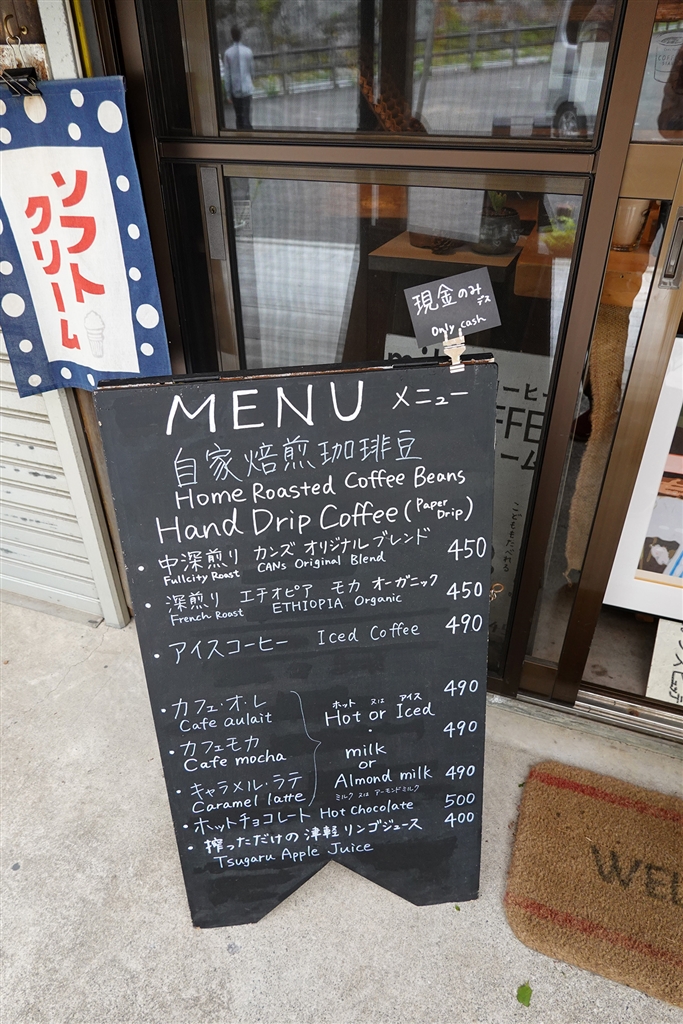 ソフト
クリーム
現金のみ
デス
Only cash
MENU メニュー
自家焙煎珈琲豆
Home Roasted Coffee Beans
Hand Drip Coffee (Paper Drip)
・中深煎り カンズ オリジナルブレンド 450
Fullcity Roast CANs Original Blend
・深煎り エチオピア モカ オーガニック 450
French Roast ETHIOPIA Organic
・アイスコーヒー Iced Coffee 490
・カフェ・オ・レ 490
Cafe aulait
ホット 又は アイス
Hot or Iced
・カフェモカ 490
Cafe mocha
milk
or
Almond milk
ミルク 又は アーモンドミルク
・キャラメル・ラテ 490
Caramel latte
・ホットチョコレート Hot Chocolate 500
・搾っただけの津軽リンゴジュース 400
Tsugaru Apple Juice
こどももたべれる
WEL